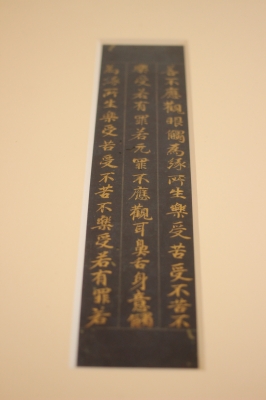 善不應觀眼觸為緣所生樂受苦受不苦不
樂受若有罪若无罪不應觀耳鼻舌身意觸
為緣所生樂受苦受不苦不樂受若有罪若